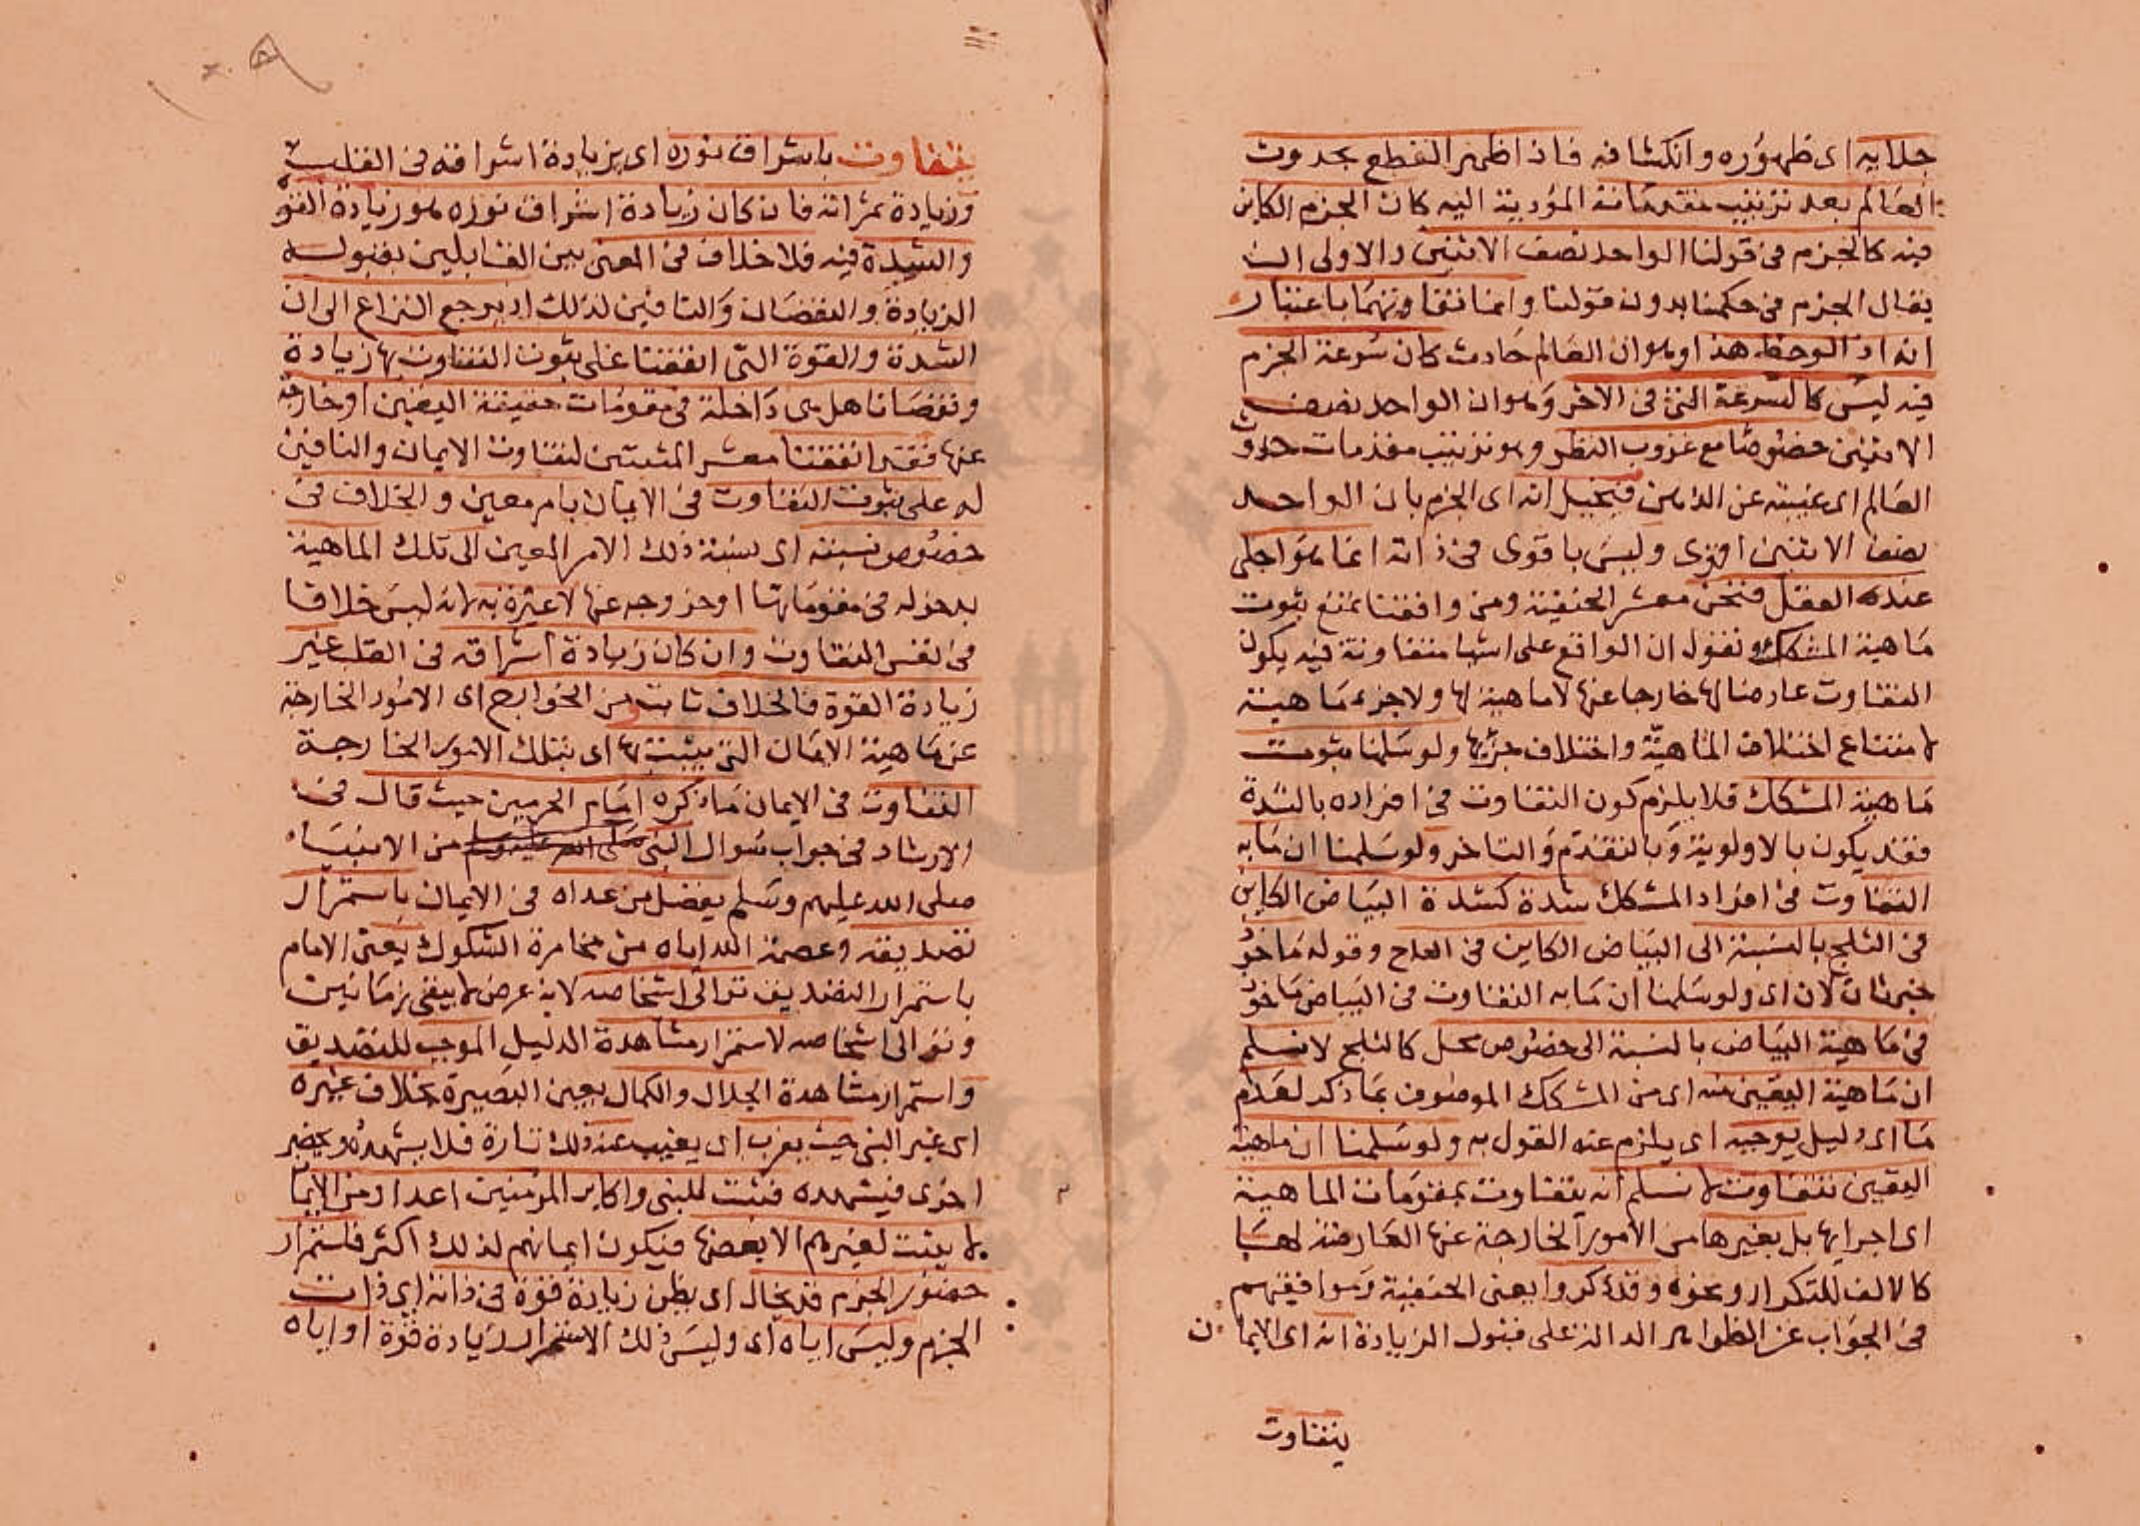 جلايه اى ظهوره وانكشافه فاذا ظهر القطع بحدوث
العالم بعد ترتيب مقدماته المؤدية اليه كان الجزم الكاين
فيه كالجزم فى قولنا الواحد نصف الاثنين والاولى ان
يقال الجزم فى حكمنا بدون قولنا وانما تفاوتهما باعتبار
انه اذا لوحظ هذا وهو ان العالم حادث كان سرعة الجزم
فيه ليس كالسرعة التى فى الاخر وهو ان الواحد نصف
الاثنين خصوصا مع عزوب النظر وهو ترتيب مقدمات حدوث
العالم اى غيبته عن الذهن فيخيل انه اى الجزم بان الواحد
نصف الاثنين اقوى وليس باقوى فى ذاته انما هو اجلى
عند العقل فنحن معشر الحنفية ومن وافقنا نمنع ثبوت
ماهية المشكك ونقول ان الواقع على اشيا متفاوتة فيه يكون
التفاوت عارضا لها خارجا عنها لا ماهية لها ولا جزء ماهية
لامتناع اختلاف الماهية واختلاف جزئها ولو سلمنا ثبوت
ماهية المشكك فلا يلزم كون التفاوت فى افراده بالشدة
فقد يكون بالاولوية وبالتقدم والتاخر ولو سلمنا ان ما به
التفاوت فى افراد المشكك شدة كشدة البياض الكاين
فى الثلج بالنسبة الى البياض الكاين فى العاج وقوله ماخوذ
خبر ثان لان اى ولو سلمنا ان ما به التفاوت فى البياض ماخوذ
فى ماهية البياض بالنسبة الى خصوص محل كالثلج لا نسلم
ان ماهية اليقين منه اى من المشكك الموصوف بما ذكر لعدم
ما اى دليل يوجبه اى يلزم عنه القول به ولو سلمنا ان ماهية
اليقين تتفاوت لا نسلم انه يتفاوت بمقومات الماهية
اى اجزايها بل بغيرها من الامور الخارجة عنها العارضة لها
كالالف للتكرار ونحوه وقد ذكروا يعنى الحنفية وموافقيهم
فى الجواب عن الظواهر الدالة على قبول الزيادة انه اى الايمان
يتفاوت
يتفاوت باشراق نوره اى بزيادة اشراقه فى القلب
وزيادة ثمراته فان كان زيادة اشراق نوره هو زيادة القوة
والشدة فيه فلا خلاف فى المعنى بين القايلين بقبوله
الزيادة والنقصان والنافين لذلك اذ يرجع النزاع الى ان
الشدة والقوة التى اتفقنا على ثبوت التفاوت بها زيادة
ونقصانا هل هى داخلة فى مقومات حقيقة اليقين او خارجة
عنها فقد اتفقنا معشر المثبتين لتفاوت الايمان والنافين
له على ثبوت التفاوت فى الايمان بامر معين والخلاف فى
خصوص نسبته اى نسبة ذلك الامر المعين الى تلك الماهية
بدخوله فى مقوماتها او خروجه عنها لا عبرة به لانه ليس خلافا
فى نفس التفاوت وان كان زيادة اشراقه فى القلب غير
زيادة القوة فالخلاف ثابت ومن الخوارج اى الامور الخارجة
عن ماهية الايمان التى يثبت بها اى بتلك الامور الخارجة
التفاوت فى الايمان ما ذكره امام الحرمين حيث قال فى
الارشاد فى جواب سوال النبى صلى الله عليه وسلم من الانبياء
صلى الله عليهم وسلم يفضل من عداه فى الايمان باستمرار
تصديقه وعصمة الله اياه من مخامرة الشكوك يعنى الامام
باستمرار التصديق توالى اشخاصه لانه عرض لا يبقى زمانين
وتوالى اشخاصه لاستمرار مشاهدة الدليل الموجب للتصديق
واستمرار مشاهدة الجلال والكمال بعين البصيرة بخلاف غيره
اى غير النبى حيث يعزب اى يغيب عنه ذلك تارة فلا يشهده ويحضر
اخرى فيشهده فثبت للنبى واكابر المؤمنين اعداد من الايمان
لا يثبت لغيرهم الا بعضها فيكون ايمانهم لذلك اكثر فاستمرار
حضور الجزم قد يخال اى يظن زيادة قوة فى ذاته اى ذات
الجزم وليس اياه اى وليس ذلك الاستمرار زيادة قوة او اياه